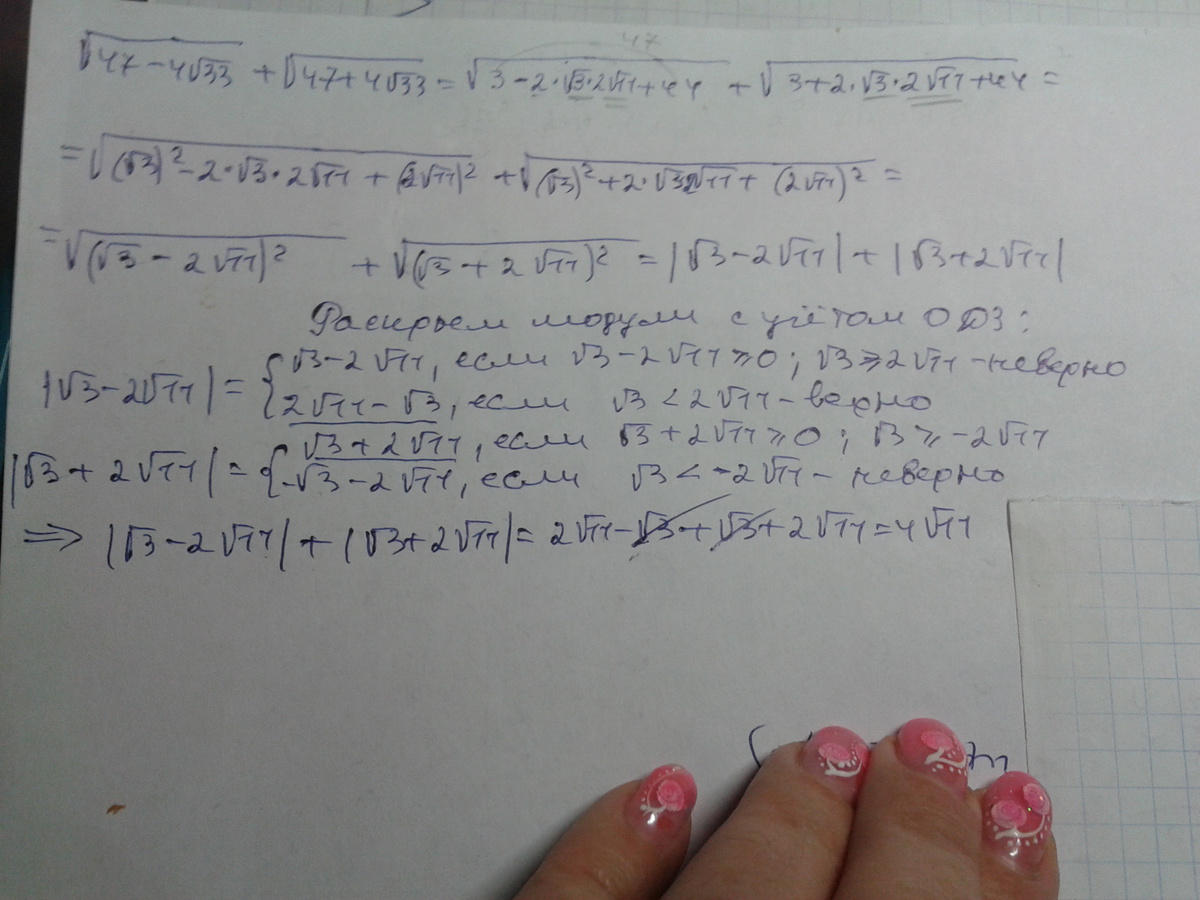 47
√(47 - 4√33) + √(47 + 4√33) = √(3 - 2·√3·2√11 + 44) + √(3 + 2·√3·2√11 + 44) =
= √((√3)² - 2·√3·2√11 + (2√11)²) + √((√3)² + 2·√3 2√11 + (2√11)²) =
= √((√3 - 2√11)²) + √((√3 + 2√11)²) = |√3 - 2√11| + |√3 + 2√11|
Раскрыем модули с учётом ОДЗ:
|√3 - 2√11| = { √3 - 2√11, если √3 - 2√11 ≥ 0; √3 ≥ 2√11 - неверно
2√11 - √3, если √3 < 2√11 - верно
|√3 + 2√11| = { √3 + 2√11, если √3 + 2√11 ≥ 0; √3 ≥ -2√11
-√3 - 2√11, если √3 < -2√11 - неверно
⇒ |√3 - 2√11| + |√3 + 2√11| = 2√11 - √3 + √3 + 2√11 = 4√11